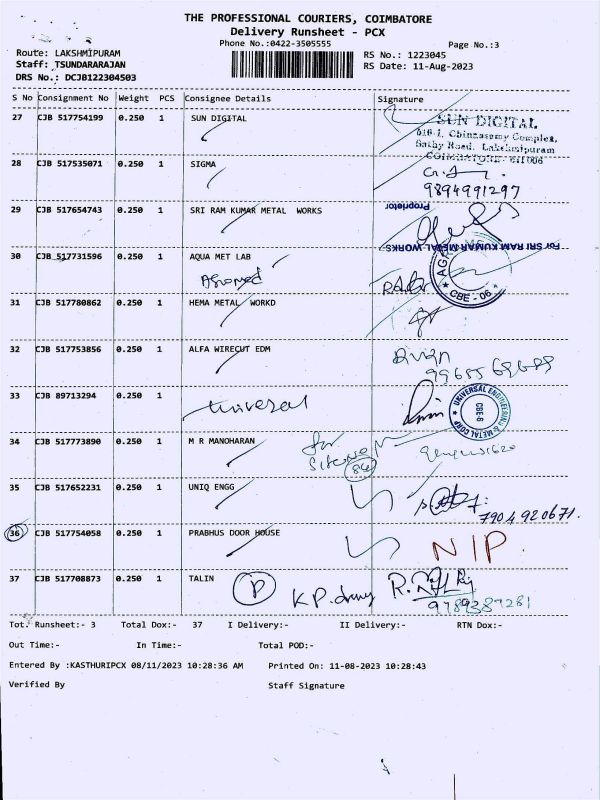 THE PROFESSIONAL COURIERS, COIMBATORE
Delivery Runsheet - PCX
Phone No.:0422-3505555
Page No.:3
Route: LAKSHMIPURAM
RS No.: 1223045
Staff: TSUNDARARAJAN
RS Date: 11-Aug-2023
DRS No.: DCJB122304503
S No Consignment No Weight PCS Consignee Details Signature
27 CJB 517754199 0.250 1 SUN DIGITAL
SUN DIGITAL
616-1, Chinnasamy Complex,
Sathy Road, Lakshmipuram
COIMBATORE - 641006
28 CJB 517535071 0.250 1 SIGMA
9894991297
29 CJB 517654743 0.250 1 SRI RAM KUMAR METAL WORKS
Proprietor
For SRI RAM KUMAR METAL WORKS
30 CJB 517731596 0.250 1 AQUA MET LAB
CBE - 06
31 CJB 517780862 0.250 1 HEMA METAL WORKD
32 CJB 517753856 0.250 1 ALFA WIRECUT EDM
33 CJB 89713294 0.250 1
Universal
UNIVERSAL ENGINEERING & METAL CORP
CBE-6
34 CJB 517773890 0.250 1 M R MANOHARAN
for
35 CJB 517652231 0.250 1 UNIQ ENGG
7904920671.
36 CJB 517754058 0.250 1 PRABHUS DOOR HOUSE
NIP.
37 CJB 517708873 0.250 1 TALIN
P
9789389281
Tot. Runsheet:- 3 Total Dox:- 37 I Delivery:- II Delivery:- RTN Dox:-
Out Time:- In Time:- Total POD:-
Entered By :KASTHURIPCX 08/11/2023 10:28:36 AM Printed On: 11-08-2023 10:28:43
Verified By Staff Signature